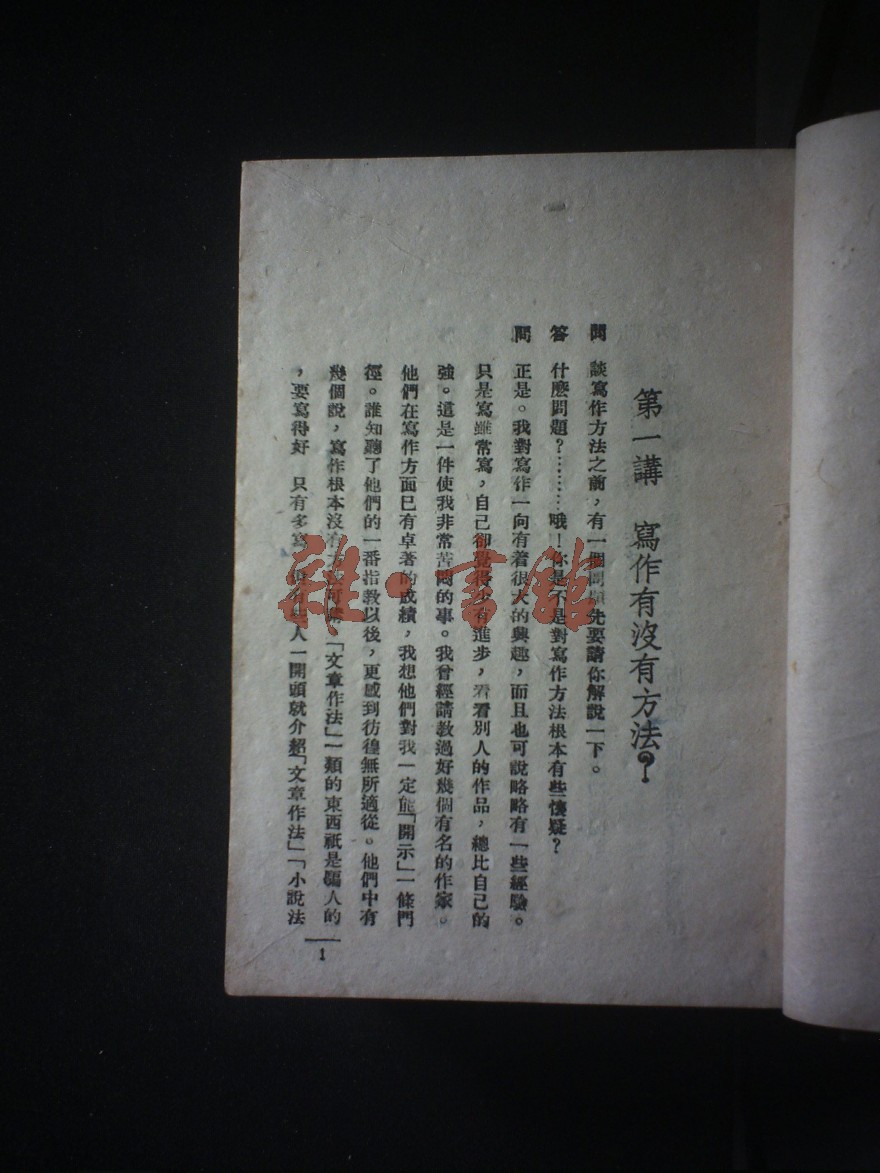 第一講 寫作有沒有方法?
問 談寫作方法之前，有一個問題先要請你解說一下。
答 什麽問題?………哦!你是不是對寫作方法根本有些懷疑?
問 正是。我對寫作一向有着很大的興趣，而且也可說略略有一些經驗。
只是寫雖常寫，自己卻覺得少有進步，看看別人的作品，總比自己的
強。這是一件使我非常苦悶的事。我曾經請教過好幾個有名的作家。
他們在寫作方面已有卓著的成績，我想他們對我一定能「開示」一條門
徑。誰知聽了他們的一番指教以後，更感到彷徨無所適從。他們中有
幾個說，寫作根本沒有方法可 「文章作法」一類的東西祇是騙人的
，要寫得好 只有多寫 人一開頭就介紹「文章作法」「小說法
1
雜·書館